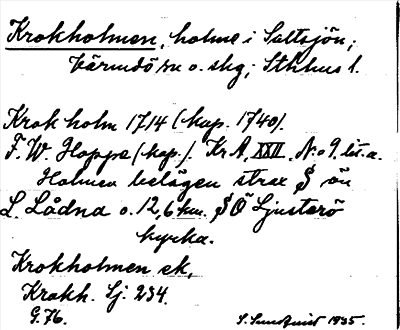 Krokholmen, holme i Saltsjön;
Värmdö sn o. skg; Sthlms l.
Krok holm 1714 (kop. 1740).
F. W. Hoppe (kop.). Kr A, XXII, No 9 lit. a.
Holmen belägen strax S ön
L. Lådna o. 12,6 km. S Ö Ljusterö
kyrka.
Krokholmen ek,
Krokh. Sj. 234.
G. 76.
S. Sundquist 1935.